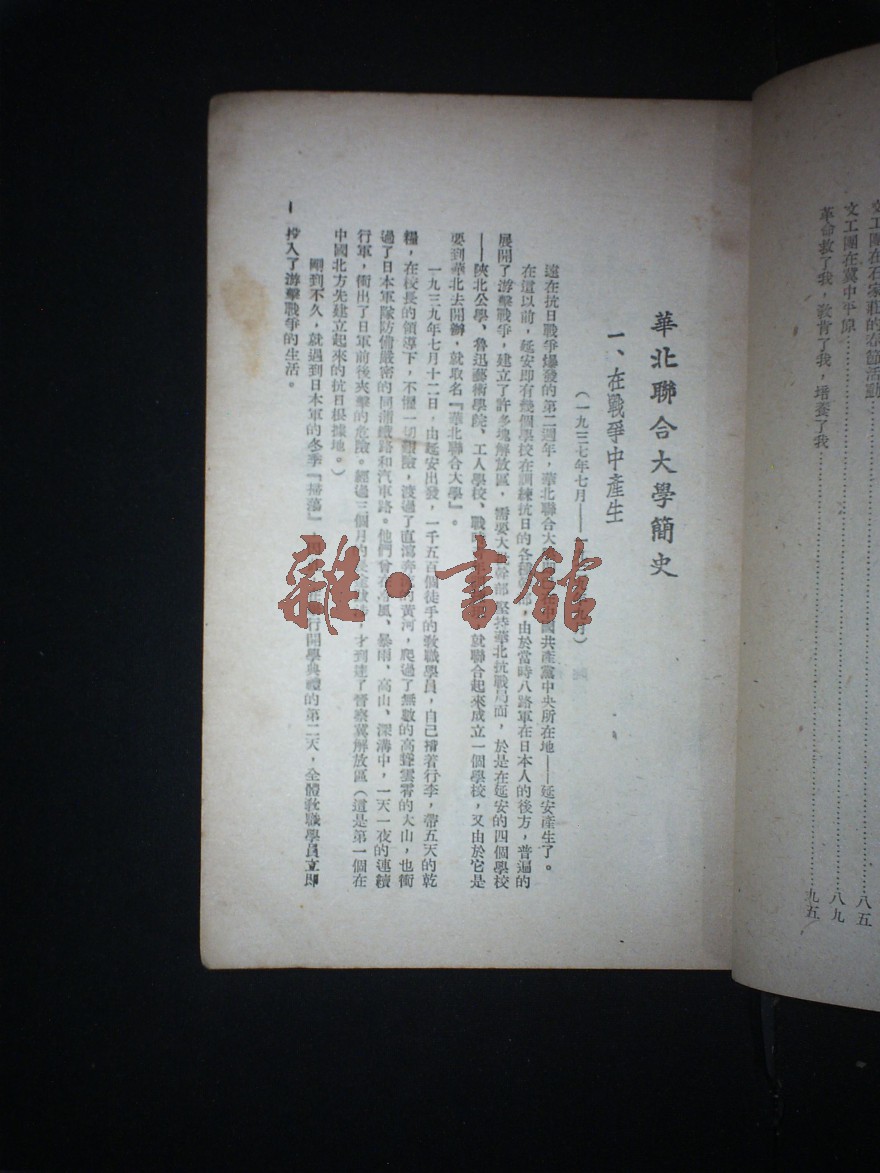 文工團在石家莊的春節活動……八五
文工團在冀中平原……八九
革命救了我，教育了我，培養了我……九五
華北聯合大學簡史
一、在戰爭中產生
（一九三七年七月——　月）
遠在抗日戰爭爆發的第二週年，華北聯合大　中國共產黨中央所在地——延安產生了。
在這以前，延安即有幾個學校在訓練抗日的各種　部，由於當時八路軍在日本人的後方，普遍的
展開了游擊戰爭，建立了許多塊解放區，需要大　幹部　堅持華北抗戰局面，於是在延安的四個學校
——陝北公學、魯迅藝術學院、工人學校、戰　就聯合起來成立一個學校，又由於它是
要到華北去開辦，就取名『華北聯合大學』。
一九三九年七月十二日，由延安出發，一千五百個徒手的教職學員，自己揹着行李，帶五天的乾
糧，在校長的領導下，不懼一切艱險，渡過了直瀉奔　的黃河，爬過了無數的高聳雲霄的大山，也衝
過了日本軍隊防備嚴密的同蒲鐵路和汽車路。他們曾在　風、暴雨、高山、深溝中，一天一夜的連續
行軍，衝出了日軍前後夾擊的危險。經過三個月的　，才到達了晉察冀解放區（這是第一個在
中國北方先建立起來的抗日根據地。）
剛到不久，就遇到日本軍的冬季『掃蕩』　行開學典禮的第二天，全體教職學員立即
投入了游擊戰爭的生活。
一
雜·書館